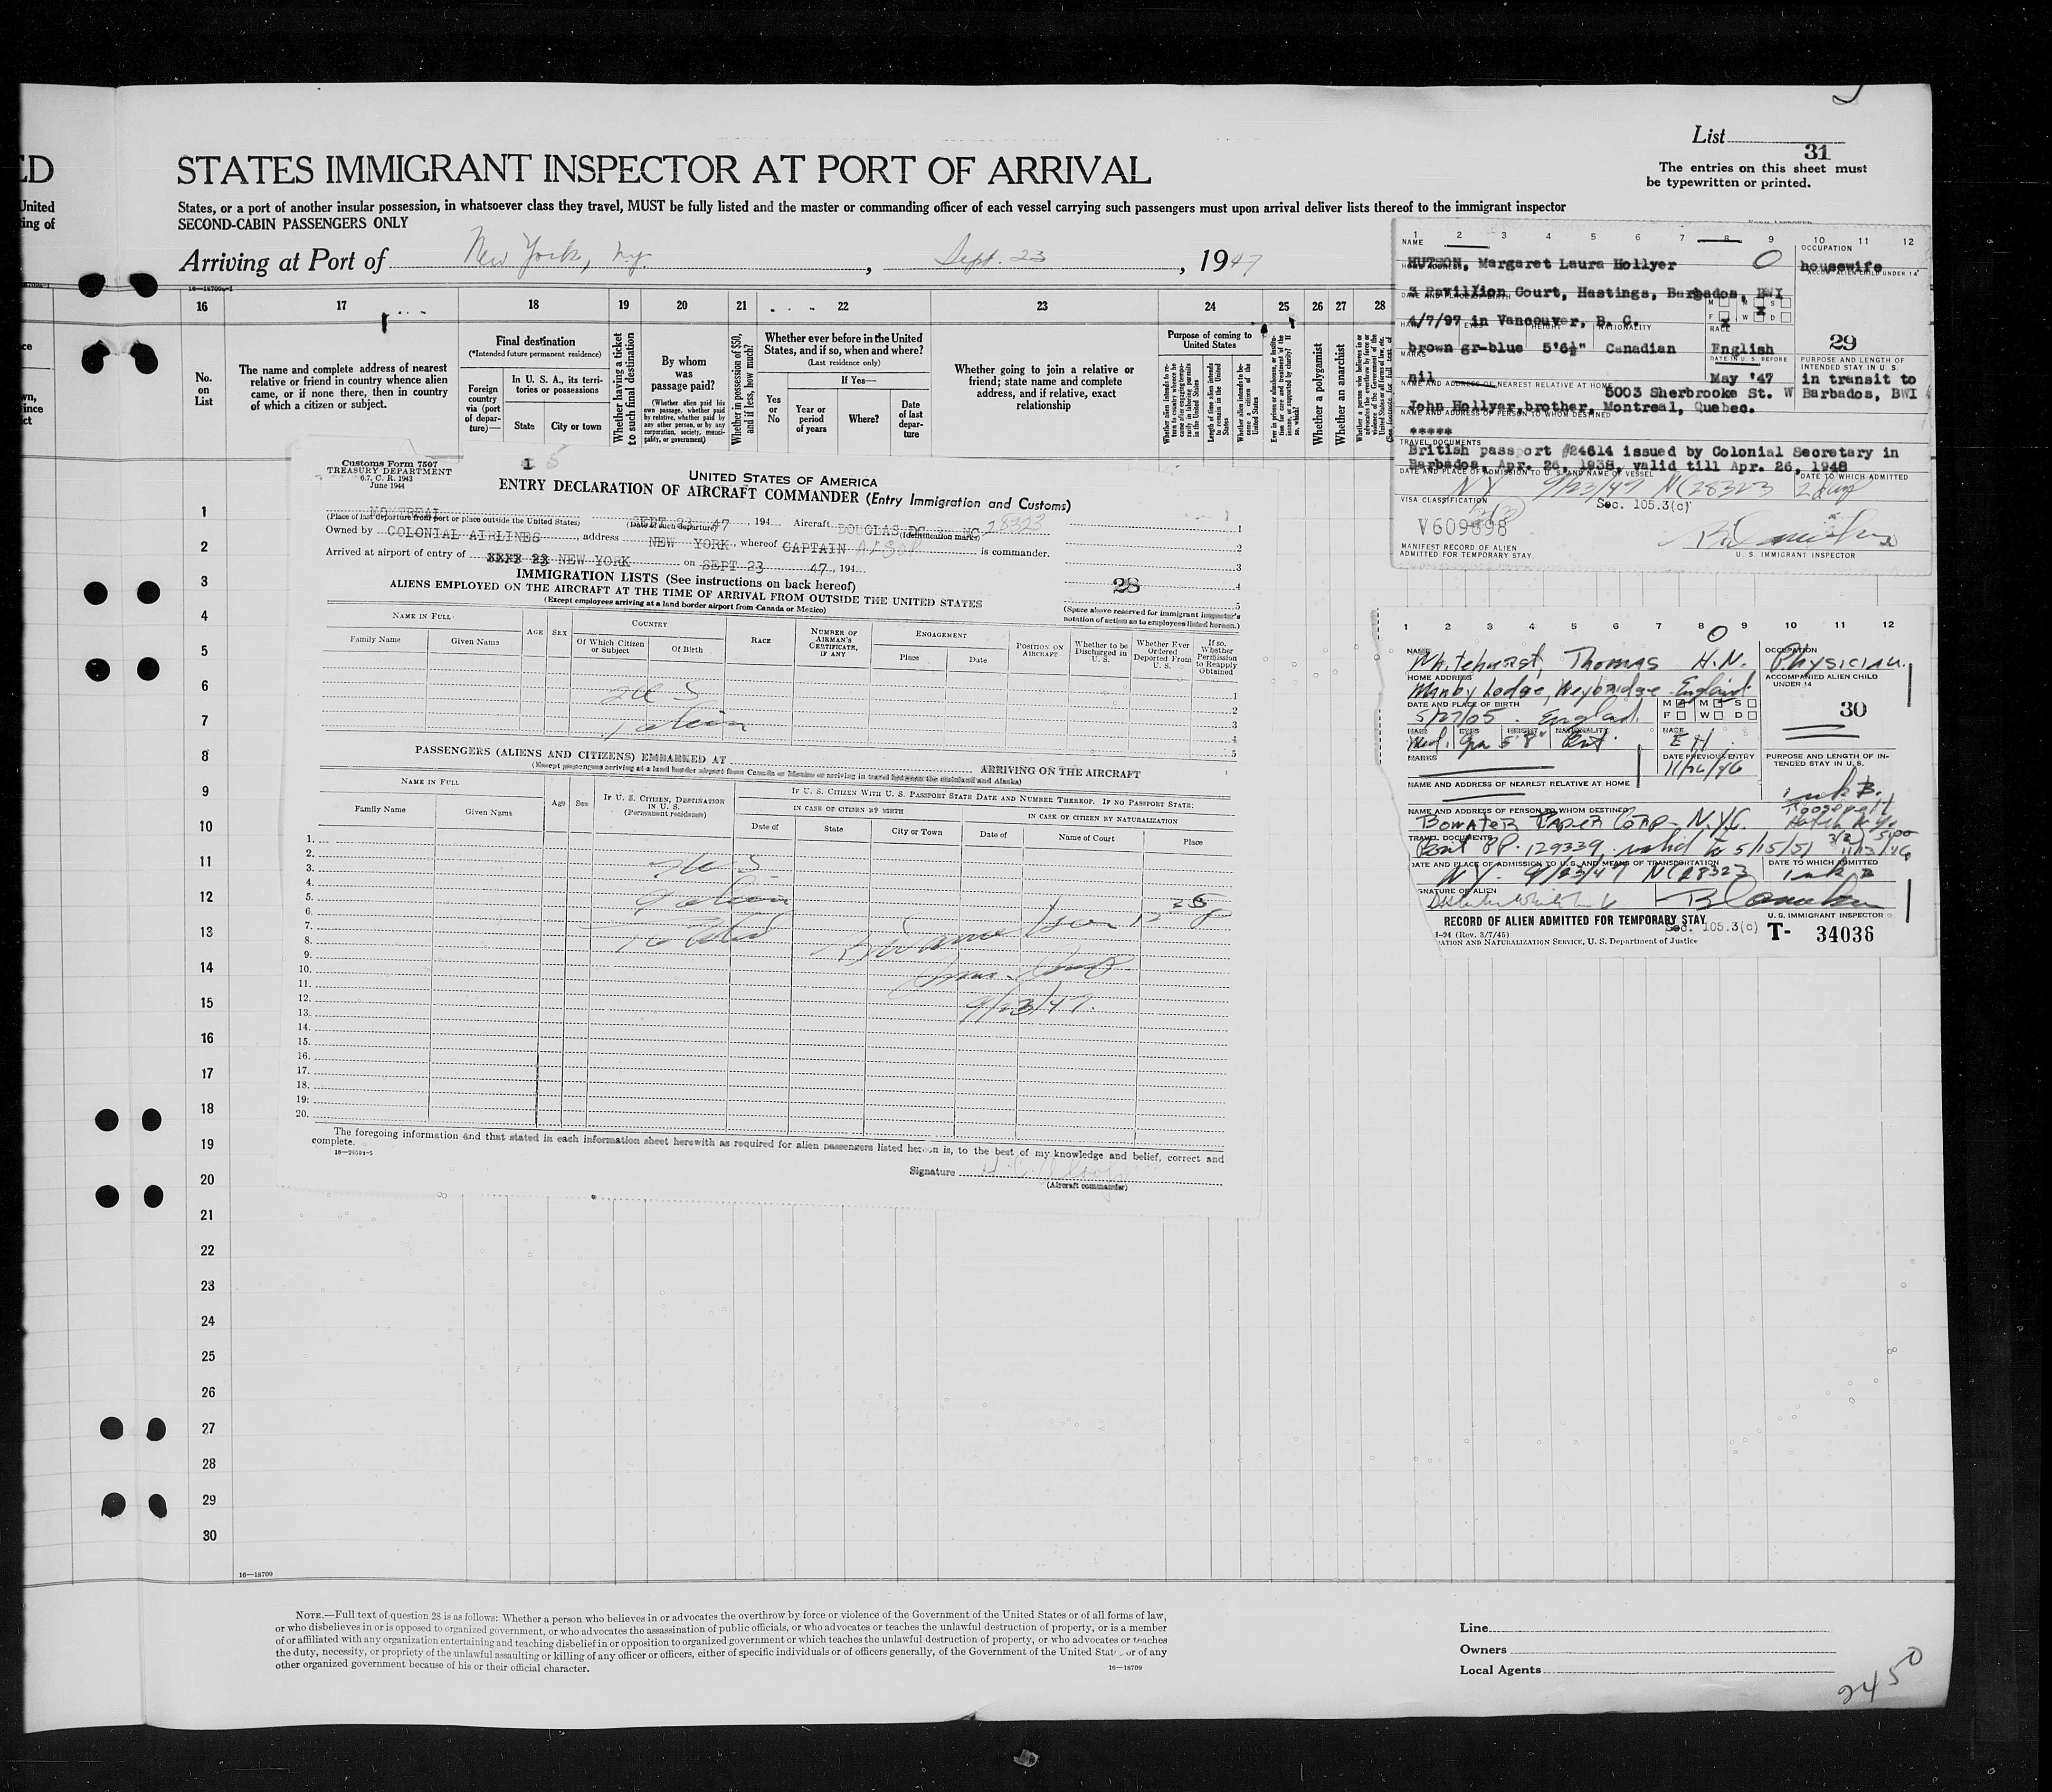 List
31
The entries on this sheet must
be typewritten or printed.
ED
STATES IMMIGRANT INSPECTOR AT PORT OF ARRIVAL
United
ing of
States, or a port of another insular possession, in whatsoever class they travel, MUST be fully listed and the master or commanding officer of each vessel carrying such passengers must upon arrival deliver lists thereof to the immigrant inspector
SECOND-CABIN PASSENGERS ONLY
Arriving at Port of New York, N.Y. , Sept. 23 , 1947
16 17 18 19 20 21 22 23 24 25 26 27 28
No. on List
The name and complete address of nearest relative or friend in country whence alien came, or if none there, then in country of which a citizen or subject.
Final destination
(*Intended future permanent residence)
Foreign country via (port of departure)—
In U. S. A., its territories or possessions
State
City or town
Whether having a ticket to such final destination
By whom was passage paid?
(Whether alien paid his own passage, whether paid by relative, whether paid by any other person, or by any corporation, society, municipality, or government)
Whether in possession of $50, and if less, how much?
Whether ever before in the United States, and if so, when and where?
(Last residence only)
If Yes—
Yes or No
Year or period of years
Where?
Date of last departure
Whether going to join a relative or friend; state name and complete address, and if relative, exact relationship
Purpose of coming to United States
Whether a polygamist
Whether an anarchist
Customs Form 7507
TREASURY DEPARTMENT
6.7, C. R. 1943
June 1944
1 5
UNITED STATES OF AMERICA
ENTRY DECLARATION OF AIRCRAFT COMMANDER (Entry Immigration and Customs)
MONTREAL SEPT 23 47, 194 Aircraft DOUGLAS DC 3 NC 28323
(Place of last departure from port or place outside the United States) (Date of such departure) (Identification marks)
Owned by COLONIAL AIRLINES, address NEW YORK, whereof CAPTAIN ALSOP is commander.
Arrived at airport of entry of SEPT 23 NEW YORK on SEPT 23 47, 194
28
IMMIGRATION LISTS (See instructions on back hereof)
ALIENS EMPLOYED ON THE AIRCRAFT AT THE TIME OF ARRIVAL FROM OUTSIDE THE UNITED STATES
(Except employees arriving at a land border airport from Canada or Mexico)
(Space above reserved for immigrant inspector's
notation of action as to employees listed herein.)
NAME IN FULL
Family Name
Given Name
AGE
SEX
COUNTRY
Of Which Citizen or Subject
Of Birth
RACE
NUMBER OF AIRMAN'S CERTIFICATE, IF ANY
ENGAGEMENT
Place
Date
POSITION ON AIRCRAFT
Whether to be Discharged in U. S.
Whether Ever Ordered Deported From U. S.
If so, Whether Permission to Reapply Obtained
PASSENGERS (ALIENS AND CITIZENS) EMBARKED AT ARRIVING ON THE AIRCRAFT
(Except passengers arriving at a land border airport from Canada or Mexico or arriving in travel between the mainland and Alaska)
NAME IN FULL
Family Name
Given Name
Age
Sex
IF U. S. CITIZEN, DESTINATION IN U. S.
(Permanent residence)
IF U. S. CITIZEN WITH U. S. PASSPORT STATE DATE AND NUMBER THEREOF. IF NO PASSPORT STATE:
IN CASE OF CITIZEN BY BIRTH
IN CASE OF CITIZEN BY NATURALIZATION
Date of
State
City or Town
Date of
Name of Court
Place
9/23/47.
The foregoing information and that stated in each information sheet herewith as required for alien passengers listed hereon is, to the best of my knowledge and belief, correct and
complete.
Signature
(Aircraft commander)
1 2 3 4 5 6 7 8 9 10 11 12
NAME
HUTSON, Margaret Laura Hollyer
OCCUPATION
housewife
3 Pavillion Court, Hastings, Barbados, BWI
DATE AND PLACE OF BIRTH
4/7/97 in Vancouver, B. C.
29
brown gr-blue 5'6½" Canadian English
MARKS
nil May '47
PURPOSE AND LENGTH OF
INTENDED STAY IN U. S.
in transit to
Barbados, BWI
NAME AND ADDRESS OF NEAREST RELATIVE AT HOME
5003 Sherbrooke St. W
John Hollyer, brother, Montreal, Quebec.
*****
TRAVEL DOCUMENTS
British passport #24614 issued by Colonial Secretary in
Barbados, Apr. 26, 1938, valid till Apr. 26, 1948
DATE TO WHICH ADMITTED
NY 9/23/47 NC 28323
VISA CLASSIFICATION
Sec. 105.3(c)
V609898
MANIFEST RECORD OF ALIEN
ADMITTED FOR TEMPORARY STAY.
U. S. IMMIGRANT INSPECTOR
1 2 3 4 5 6 7 8 9 10 11 12
NAME
Whitehurst, Thomas H.N.
OCCUPATION
Physician
HOME ADDRESS
Manby Lodge, Weybridge England
ACCOMPANIED ALIEN CHILD
UNDER 14
DATE AND PLACE OF BIRTH
5/27/05 England
30
HAIR EYES HEIGHT NATIONALITY RACE
5'8"
MARKS
DATE PREVIOUS ENTRY
11/26/46
PURPOSE AND LENGTH OF IN-
TENDED STAY IN U. S.
NAME AND ADDRESS OF NEAREST RELATIVE AT HOME
NAME AND ADDRESS OF PERSON TO WHOM DESTINED
Bowater Paper Corp - N.Y.C.
TRAVEL DOCUMENTS
PP. 129339 valid to 5/15/51
DATE AND PLACE OF ADMISSION TO U. S. AND MEANS OF TRANSPORTATION
DATE TO WHICH ADMITTED
N.Y. 9/23/47 NC 28323
SIGNATURE OF ALIEN
RECORD OF ALIEN ADMITTED FOR TEMPORARY STAY
U. S. IMMIGRANT INSPECTOR
Sec. 105.3(c)
T- 34036
I-94 (Rev. 3/7/45)
U. S. Department of Justice
1
2
3
4
5
6
7
8
9
10
11
12
13
14
15
16
17
18
19
20
21
22
23
24
25
26
27
28
29
30
16—18709
NOTE.—Full text of question 28 is as follows: Whether a person who believes in or advocates the overthrow by force or violence of the Government of the United States or of all forms of law,
or who disbelieves in or is opposed to organized government, or who advocates the assassination of public officials, or who advocates or teaches the unlawful destruction of property, or is a member
of or affiliated with any organization entertaining and teaching disbelief in or opposition to organized government or which teaches the unlawful destruction of property, or who advocates or teaches
the duty, necessity, or propriety of the unlawful assaulting or killing of any officer or officers, either of specific individuals or of officers generally, of the Government of the United Stat or of any
other organized government because of his or their official character.
16—18709
Line
Owners
Local Agents
2450